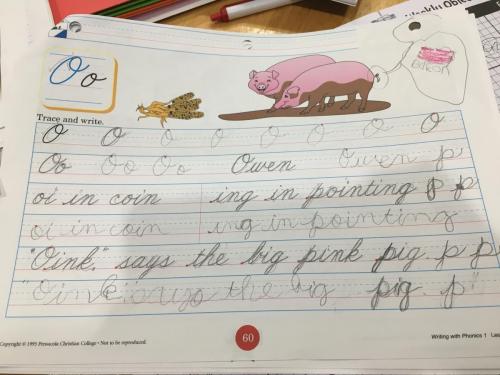 Weekly Obje
Bacon
O o
Trace and write.
O O O O O O O O
Oo Oo Oo Owen Owen p
oi in coin ing in pointing p p
oi in coin ing in pointing
"Oink," says the big pink pig. p p
"Oink the big pig. p"
60
Copyright © 1995 Pensacola Christian College • Not to be reproduced.
Writing with Phonics 1